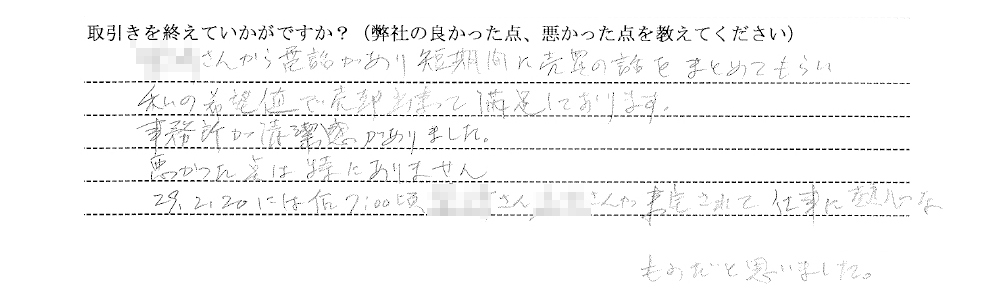 取引きを終えていかがですか?(弊社の良かった点、悪かった点を教えてください)
さんから電話があり短期間に売買の話をまとめてもらい
私の希望値で売却出来て満足しております。
事務所が清潔感がありました。
悪かった点は特にありません
29.2.20には夜7:00頃 さん、 さんが来宅されて仕事に熱心な
ものだと思いました。